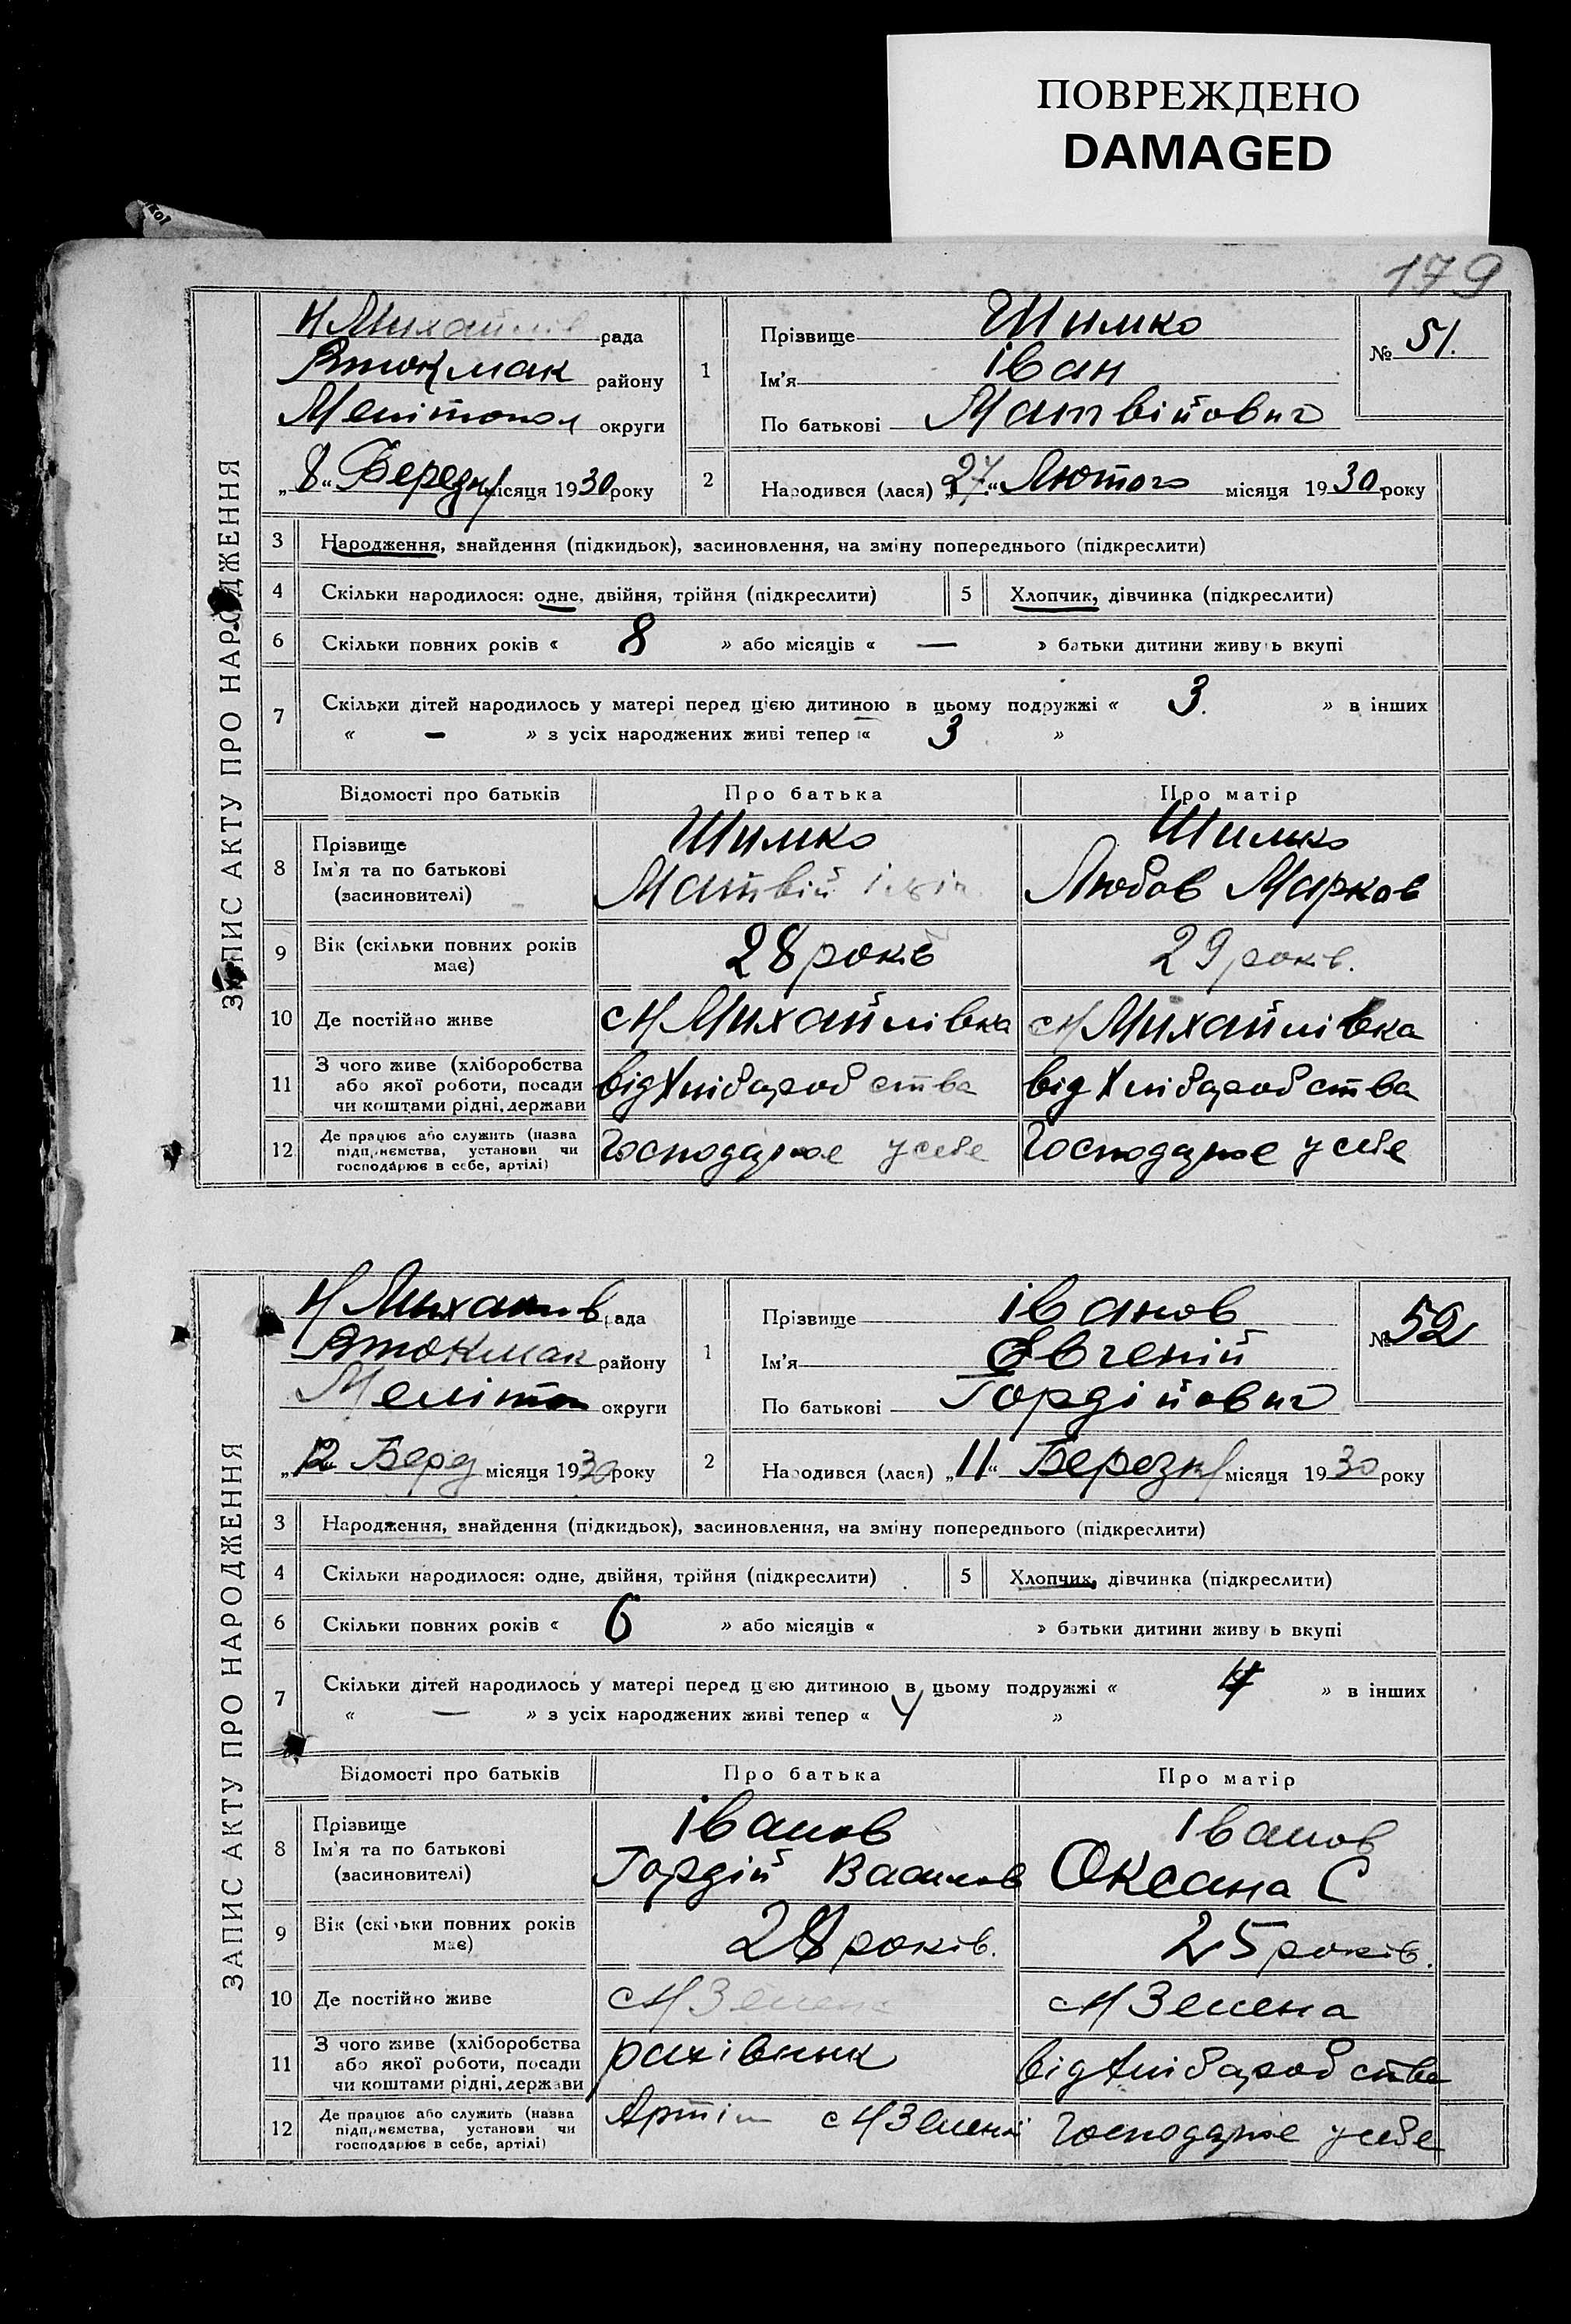 ПОВРЕЖДЕНО
DAMAGED
179
ЗАПИС АКТУ ПРО НАРОДЖЕННЯ
Н Михайлів рада
Втокмак району
Мелітопол округи
„8“ Березня місяця 1930 року
1
Прізвище Шимко
Ім'я Іван
По батькові Матвійович
№ 51.
2
Народився (лася) „27“ Лютого місяця 1930 року
3 Народження, знайдення (підкидьок), засиновлення, на зміну попереднього (підкреслити)
4 Скільки народилося: одне, двійня, трійня (підкреслити) 5 Хлопчик, дівчинка (підкреслити)
6 Скільки повних років « 8 » або місяців « — » батьки дитини живуть вкупі
7 Скільки дітей народилось у матері перед цією дитиною в цьому подружжі « 3. » в інших
« — » з усіх народжених живі тепер « 3 »
Відомості про батьків Про батька Про матір
8 Прізвище
Ім'я та по батькові
(засиновителі)
Шимко
Матвій
Шимко
Любов Марков
9 Вік (скільки повних років
має)
28 років
29 років.
10 Де постійно живе с Н Михайлівка с Н Михайлівка
11 З чого живе (хліборобства
або якої роботи, посади
чи коштами рідні, держави
від Хліборобства від Хліборобства
12 Де працює або служить (назва
підприємства, установи чи
господарює в себе, артілі)
Господарює у себе Господарює у себе
ЗАПИС АКТУ ПРО НАРОДЖЕННЯ
Н Михайлів рада
Втокмак району
Меліто округи
„12“ Берез місяця 1930 року
1
Прізвище Іванов
Ім'я Євгеній
По батькові Гордійович
№ 52
2
Народився (лася) „11“ Березня місяця 1930 року
3 Народження, знайдення (підкидьок), засиновлення, на зміну попереднього (підкреслити)
4 Скільки народилося: одне, двійня, трійня (підкреслити) 5 Хлопчик, дівчинка (підкреслити)
6 Скільки повних років « 6 » або місяців « » батьки дитини живуть вкупі
7 Скільки дітей народилось у матері перед цією дитиною в цьому подружжі « 4 » в інших
« — » з усіх народжених живі тепер « 4 »
Відомості про батьків Про батька Про матір
8 Прізвище
Ім'я та по батькові
(засиновителі)
Іванов
Гордій Васильов
Іванов
Оксана С
9 Вік (скільки повних років
має)
28 років.
25 років.
10 Де постійно живе с Н Зелена с Н Зелена
11 З чого живе (хліборобства
або якої роботи, посади
чи коштами рідні, держави
рахівник від Хліборобства
12 Де працює або служить (назва
підприємства, установи чи
господарює в себе, артілі)
Артіл с Н Зелений Господарює у себе